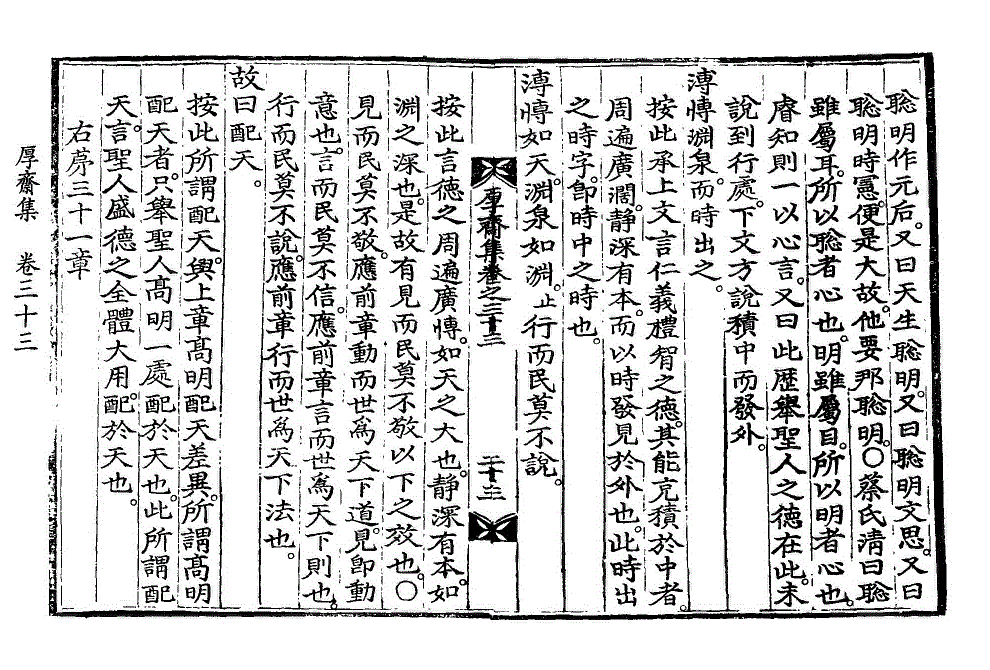 聡明作元后。又曰天生聡明。又曰聡明文思。又曰
聡明時憲。便是大故。他要那聡明。○蔡氏清曰聡
雖屬耳。所以聡者心也。明雖屬目。所以明者心也。
睿知則一以心言。又曰此歴舉聖人之德在此。未
說到行處。下文方說積中而發外。
溥博淵泉。而時出之。
按此承上文言仁義禮智之德。其能充積於中者。
周遍廣濶。静深有本。而以時發見於外也。此時出
之時字。卽時中之時也。
溥博如天。淵泉如淵。止行而民莫不說。
厚齋集卷之三十三
二十三
按此言德之周遍廣博。如天之大也。静深有本。如
淵之深也。是故有見而民莫不敬以下之效也。○
見而民莫不敬。應前章動而世爲天下道。見卽動
意也。言而民莫不信。應前章言而世爲天下則也。
行而民莫不說。應前章行而世爲天下法也。
故曰配天。
按此所謂配天。與上章高明配天差異。所謂高明
配天者。只舉聖人高明一處配於天也。此所謂配
天。言聖人盛德之全體大用。配於天也。
右第三十一章
厚齋集 卷三十三